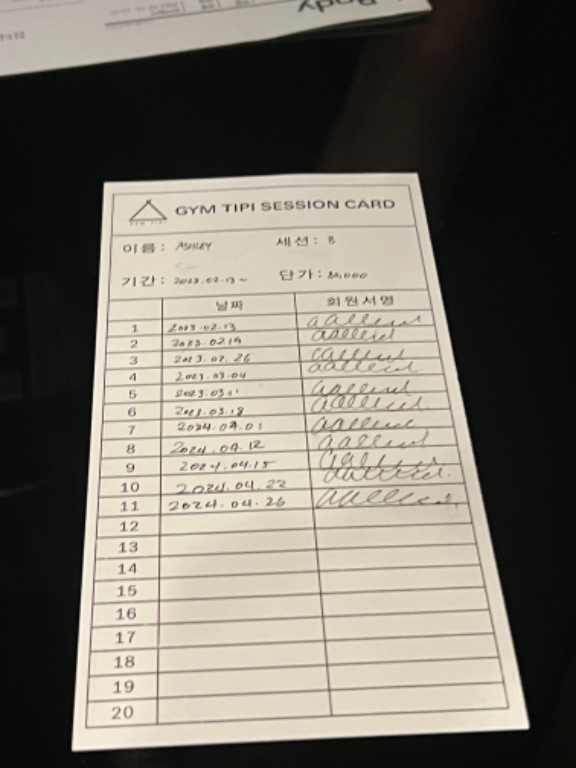 GYM TIPI
GYM TIPI SESSION CARD
이름: ASHLEY 세션: 8
기간: 2023.02.13~ 단가: 80,000
날짜 회원서명
1 2023.02.13
2 2023.02.19
3 2023.02.26
4 2023.03.04
5 2023.03.11
6 2023.03.18
7 2024.04.01
8 2024.04.12
9 2024.04.15
10 2024.04.22
11 2024.04.26
12
13
14
15
16
17
18
19
20